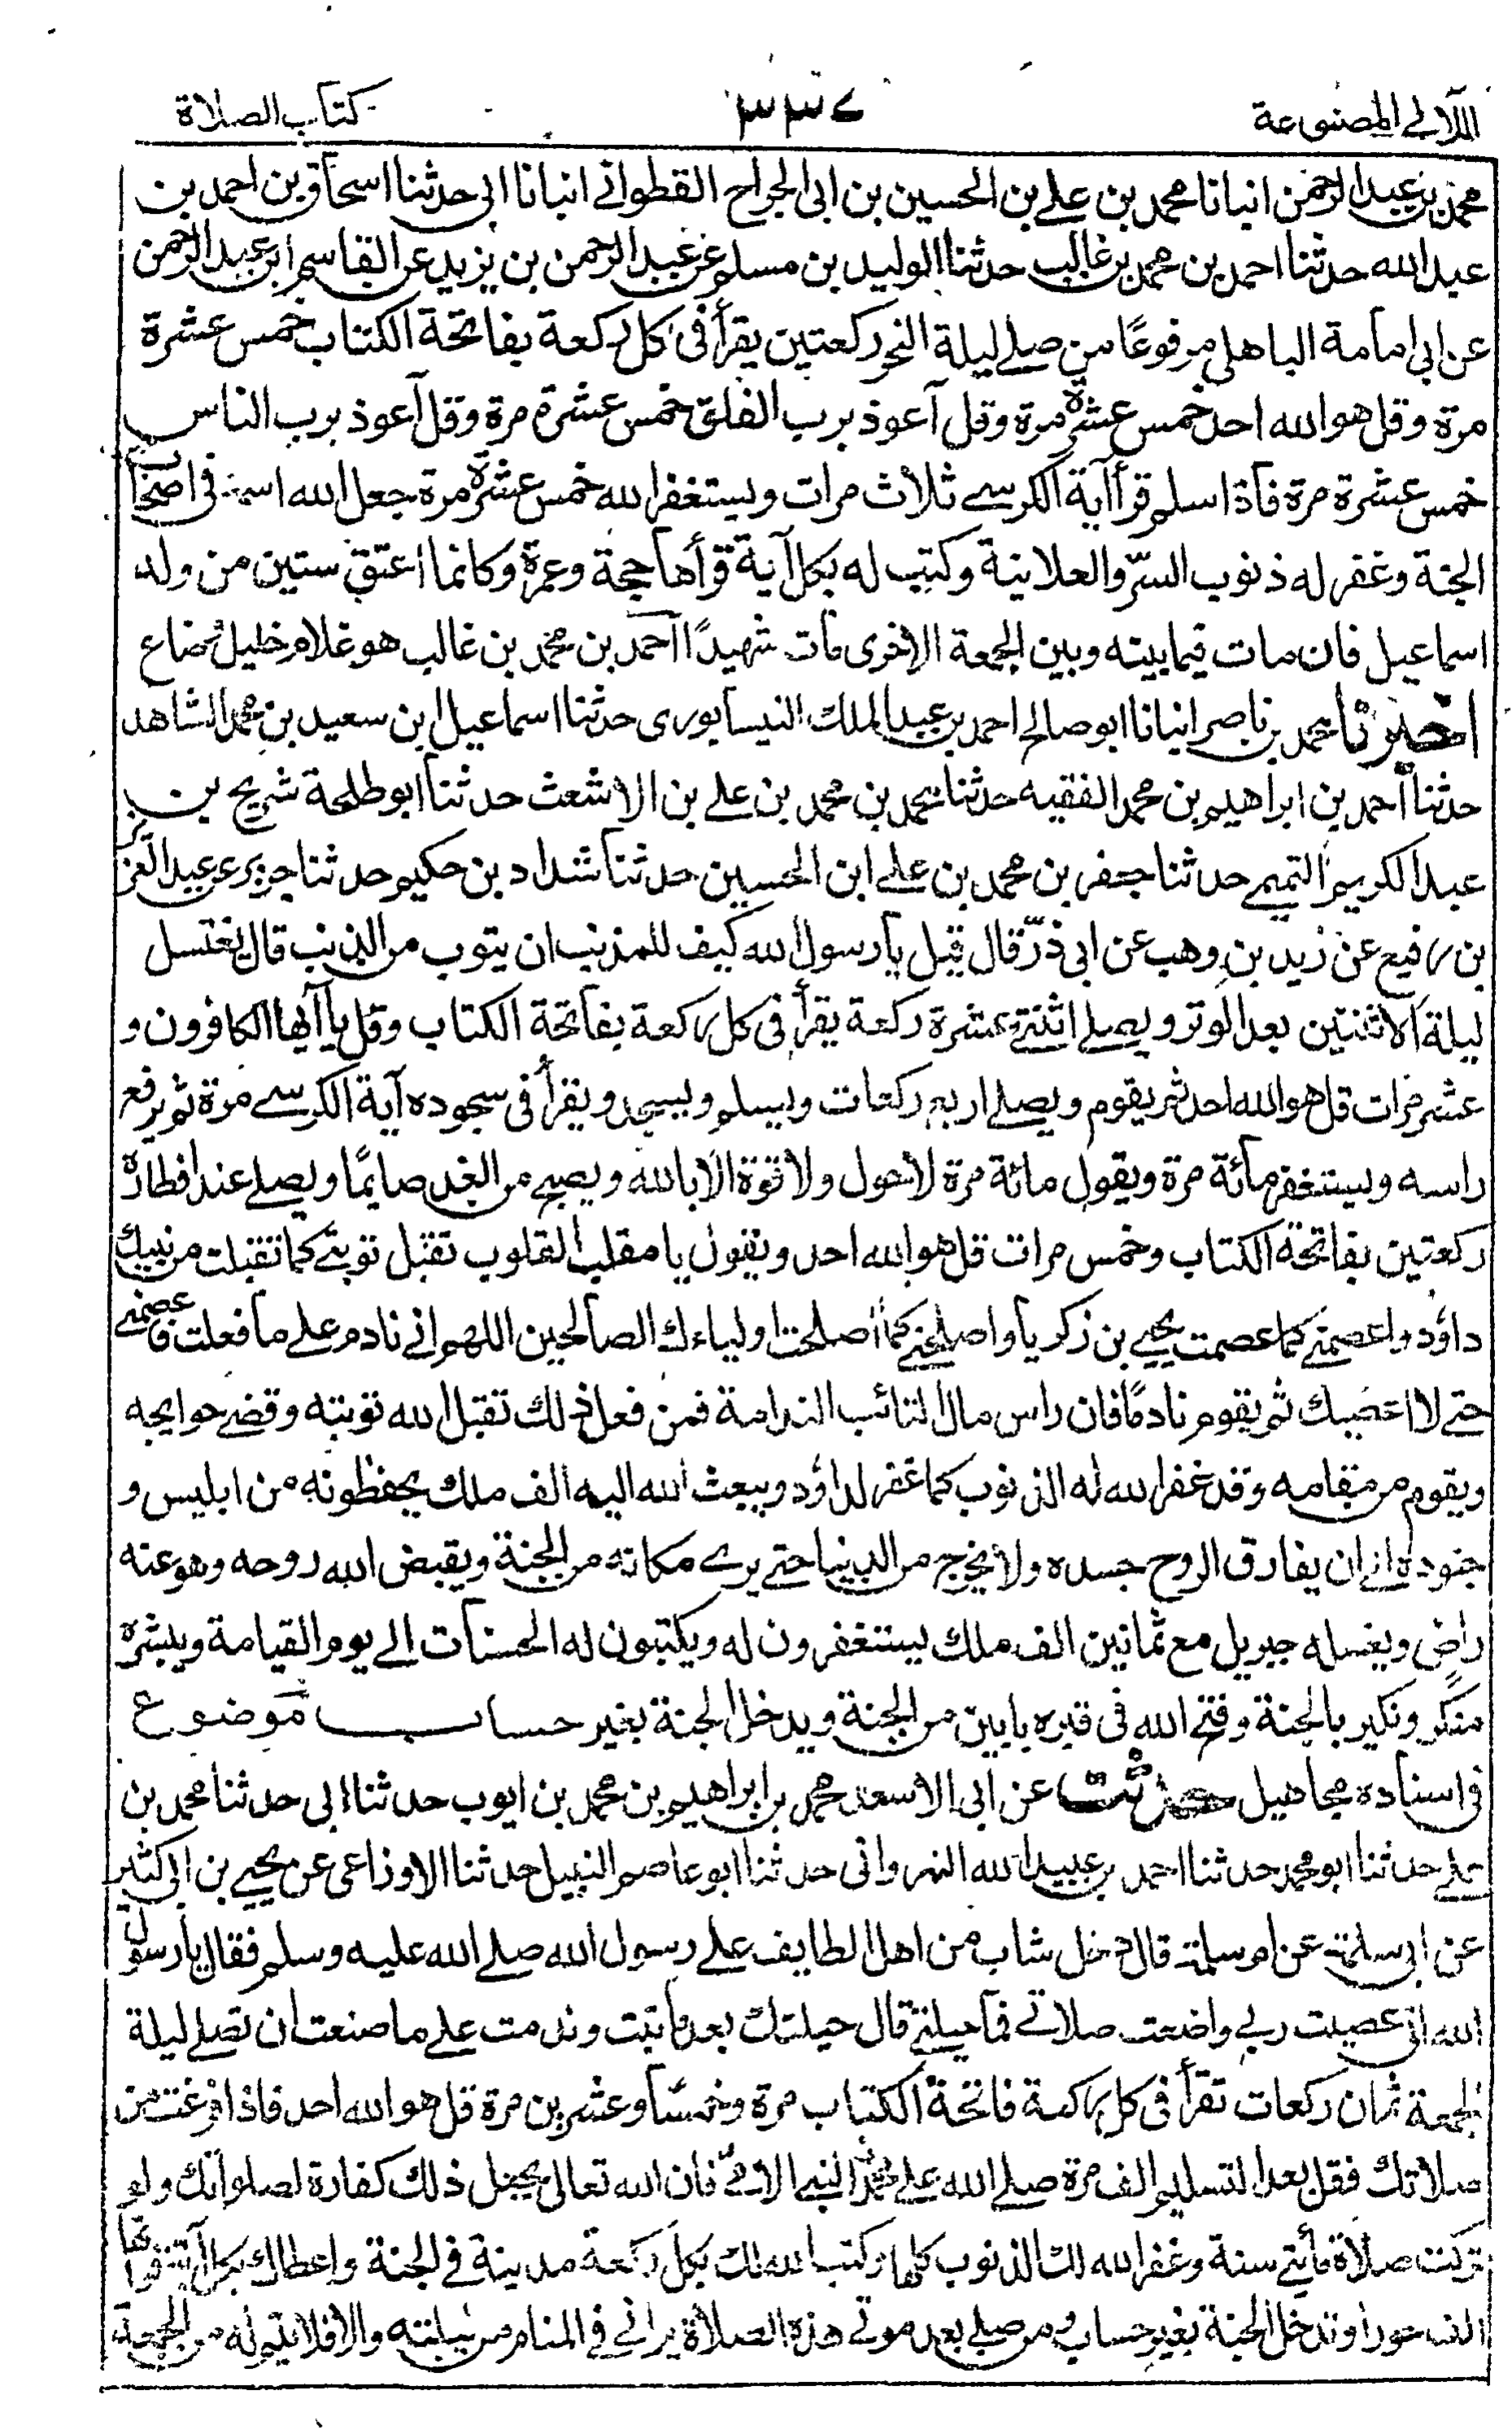 اللآلي المصنوعة
٣٣٧
كتاب الصلاة
محمد بن عبد الرحمن انبانا محمد بن علے بن الحسين بن ابى الجراح القطوانے انبانا ابى حدثنا اسحاق بن احمد بن
عبد الله حدثنا احمد بن محمد بن غالب حدثنا الوليد بن مسلم عن عبد الرحمن بن يزيد عن القاسم ابن عبد الرحمن
عن ابى امامة الباهلى مرفوعًا من صلے ليلة النحر ركعتين يقرأ فى كل ركعة بفاتحة الكتاب خمس عشرة
مرة وقل هو الله احد خمس عشرة مرة وقل آعوذ برب الفلق خمس عشرة مرة وقل آعوذ برب الناس
خمس عشرة مرة فآذا سلم قرأ اية الكرسے ثلاث مرات ويستغفر الله خمس عشرة مرة جعل الله اسمه فى اصحاب
الجنة وغفر له ذنوب السرّ والعلانية وكتب له بكل آية قرأها حجة وعمرة وكانما اعتق ستين من ولد
اسماعيل فان مات فيما بينه وبين الجمعة الاخرى مات شهيدًا آحمد بن محمد بن غالب هو غلام خليل وضاع
اخبرنا محمد بن ناصر انبانا ابو صالح احمد بن عبد الملك النيسابورى حدثنا اسماعيل ابن سعيد بن محمد الشاهد
حدثنا آحمد بن ابراهيم بن محمد الفقيه حدثنا محمد بن محمد بن علے بن الاشعث حدثنا ابو طلحة شريح بن
عبد الكريم التميمے حدثنا جعفر بن محمد بن علے ابن الحسين حدثنا شداد بن حكيم حدثنا جرير عن عبد العزيز
بن رفيع عن زيد بن وهب عن ابى ذرّ قال قيل يا رسول الله كيف للمذنب ان يتوب من الذنب قال يغتسل
ليلة الاثنتين بعد الوتر ويصلے اثنتے عشرة ركعة يقرأ فى كل ركعة بفاتحة الكتاب وقل يا آيها الكافرون و
عشر مرات قل هو الله احد ثم يقوم ويصلے اربع ركعات ويسلم ويسجد ويقرأ فى سجوده آية الكرسے مرة ثم يرفع
راسه ويستغفر مآئة مرة ويقول مائة مرة لا حول ولا قوة الا بالله ويصبح من الغد صايمًا ويصلے عند افطاره
ركعتين بفاتحة الكتاب وخمس مرات قل هو الله احد ويقول يا مقلب القلوب تقبل توبتے كما تقبلت من نبيك
داؤد واعصمنے كما عصمت يحيے بن زكريا واصلحنے كما اصلحت اولياءك الصالحين اللهم انے نادم علے ما فعلت فاعصمنے
حتے لا اعصيك ثم يقوم نادمًا فان راس مال التائب الندامة فمن فعل ذلك تقبل الله توبته وقضے حوايجه
ويقوم من مقامه وقد غفر الله له الذنوب كما غفر لداؤد ويبعث الله اليه الف ملك يحفظونه من ابليس و
جنوده الے ان يفارق الروح جسده ولا يخرج من الدنيا حتے يرے مكانه من الجنة ويقبض الله روحه وهو عنه
راض ويغسله جبريل مع ثمانين الف ملك يستغفرون له ويكتبون له الحسنآت الے يوم القيامة ويبشره
منكر ونكير بالجنة وفتح الله فى قبره بابين من الجنة ويدخل الجنة بغير حساب موضوع
فى اسناده مجاهيل حدثت عن ابى الاسعد محمد بن ابراهيم بن محمد بن ايوب حدثنا ابى حدثنا محمد بن
علے حدثنا ابو محمد حدثنا احمد بن عبيد الله النهروانى حدثنا ابو عاصم النبيل حدثنا الاوزاعى عن يحيے بن ابى كثير
عن ابى سلمة عن ام سلمة قال دخل شاب من اهل الطايف علے رسول الله صلے الله عليه وسلم فقال يا رسول
الله انى عصيت ربے واضعت صلاتے فما حيلتے قال حيلتك بعد ما تبت وندمت علے ما صنعت ان تصلے ليلة
الجمعة ثمان ركعات تقرأ فى كل ركعة فاتحة الكتاب مرة وخمسًا وعشرين مرة قل هو الله احد فاذا فرغت من
صلاتك فقل بعد التسليم الف مرة صلے الله علے محمد النبے الامّے فان الله تعالى يجعل ذلك كفارة لصلواتك ولو
تركت صلاة مأتے سنة وغفر الله لك الذنوب كلها وكتب الله لك بكل ركعة مدينة فے الجنة واعطاك بكل آية قرأتها
الف حوراء وتدخل الجنة بغير حساب ومن صلے بعد موتے هذه الصلاة يرانے فے المنام من ليلته والا فلا يتم له من الجمعة